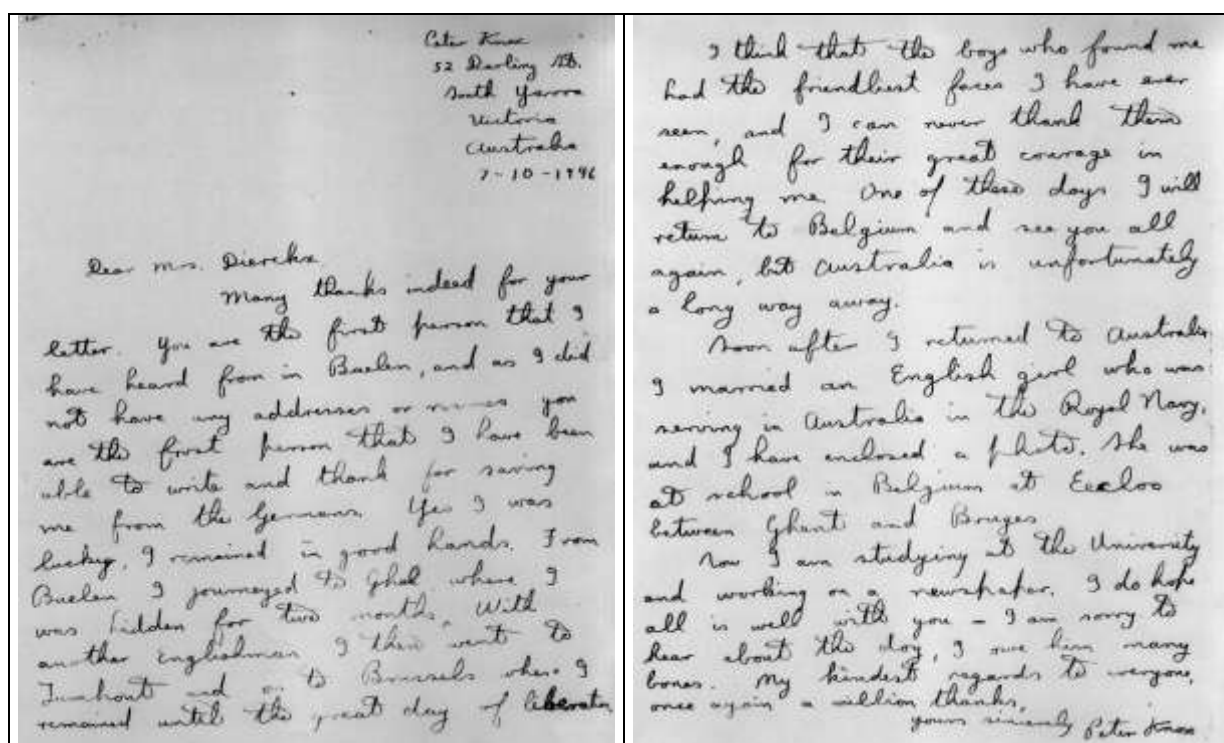 Peter Knox
52 Darling St.
South Yarra
Victoria
Australia
7-10-1946
Dear Mrs. Dierckx
Many thanks indeed for your
letter. You are the first person that I
have heard from in Baelen, and as I did
not have any addresses or names you
are the first person that I have been
able to write and thank for saving
me from the Germans. Yes I was
lucky, I remained in good hands. From
Baelen I journeyed to Ghel where I
was hidden for two months. With
another Englishman I then went to
Turnhout and on to Brussels where I
remained until the great day of liberation
I think that the boys who found me
had the friendliest faces I have ever
seen, and I can never thank them
enough for their great courage in
helping me. One of these days I will
return to Belgium and see you all
again, but Australia is unfortunately
a long way away.
Soon after I returned to Australia
I married an English girl who was
serving in Australia in the Royal Navy,
and I have enclosed a photo. She was
at school in Belgium at Eecloo
between Ghent and Bruges
Now I am studying at the University
and working on a newspaper. I do hope
all is well with you - I am sorry to
hear about the dog, I owe him many
bones. My kindest regards to everyone,
once again a million thanks,
yours sincerely Peter Knox